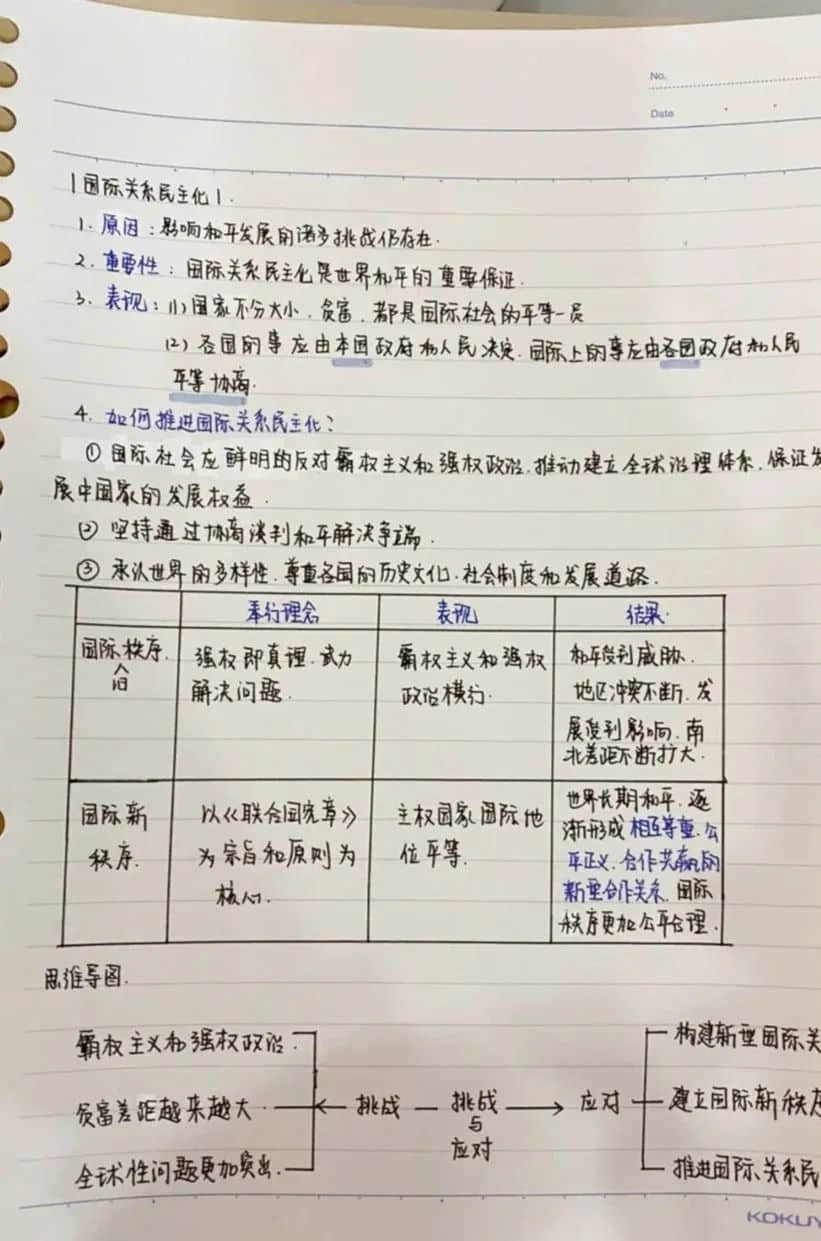 No.
Date
|国际关系民主化|.
1. 原因：影响和平发展的诸多挑战仍存在.
2. 重要性：国际关系民主化是世界和平的重要保证.
3. 表现：(1)国家不分大小、贫富、都是国际社会的平等一员
(2)各国的事应由本国政府和人民决定.国际上的事应由各国政府和人民
平等协商.
4. 如何推进国际关系民主化？
①国际社会应鲜明的反对霸权主义和强权政治.推动建立全球治理体系.保证发
展中国家的发展权益.
②坚持通过协商谈判和平解决争端.
③承认世界的多样性.尊重各国的历史文化.社会制度和发展道路.
奉行理念 表现 结果.
国际秩序.
旧
强权即真理.武力
解决问题.
霸权主义和强权
政治横行.
和平受到威胁.
地区冲突不断.发
展受到影响.南
北差距不断扩大.
国际新
秩序.
以《联合国宪章》
为宗旨和原则为
核心.
主权国家国际地
位平等.
世界长期和平.逐
渐形成相互尊重.公
平正义.合作共赢的
新型合作关系.国际
秩序更加公平合理.
思维导图.
霸权主义和强权政治.
贫富差距越来越大.
全球性问题更加突出.
挑战
挑战
与
应对
应对
构建新型国际关
建立国际新秩序
推进国际关系民
KOKUY